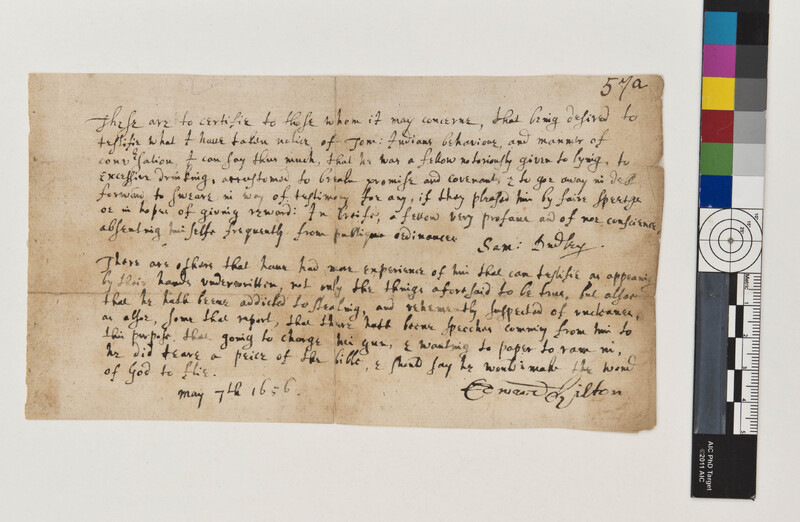 57a
These are to certifie to those whom it may concerne, that being desired to
testifie what I have taken notice of Tom: Indians behaviour, and manner of
conv'sation, I can say thus much, that he was a fellow notoriously given to lying, to
excessive drinking, accustomed to breake promise and covenant, & to goe away in debt
forward to sweare in way of testimony for any, if they pleased him by faire speeches
or in hopes of giving reward: In briefe, a fellow very profane and of noe conscience
absenting himselfe frequently from publique ordinances.
Sam: Dudley.
There are others that have had more experience of him that can testifie as appearing
by their hands underwritten, not only the things aforesaid to be true, but alsoe
that he hath beene addicted to stealing, and vehemently suspected of uncleanes,
as alsoe, some that report, that there hath beene speeches comming from him to
this purpose, that going to charge his gun, & wanting to paper to ram in,
he did teare a peice of the bible, & should say he would make the word
of God to flie.
May 7th 1656.
Edward Hilton